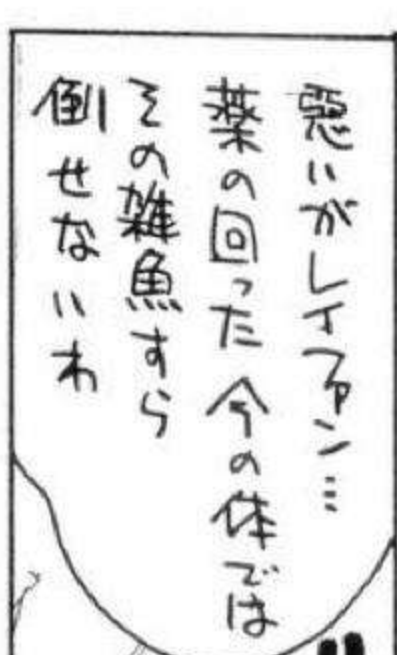 悪いがレイファン…
薬の回った今の体では
その雑魚すら
倒せないわ